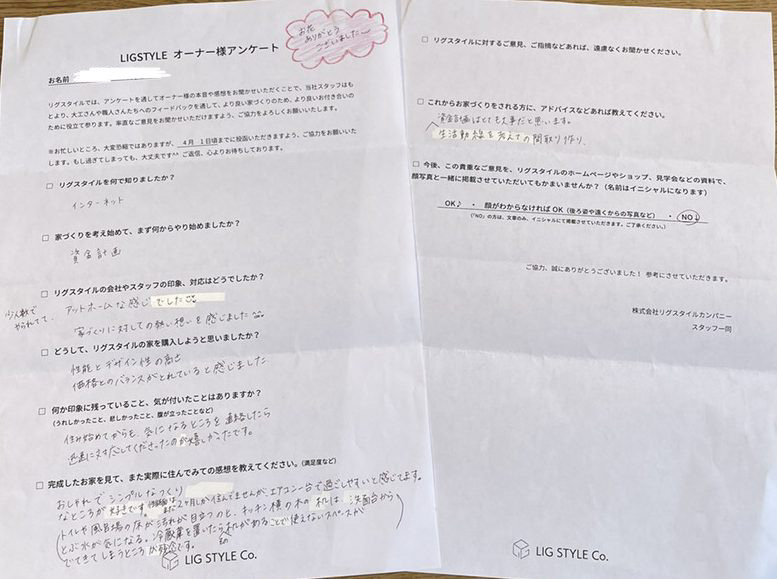 LIGSTYLE オーナー様アンケート
お花
ありがとう
ございました
お名前
リグスタイルでは、アンケートを通してオーナー様の本音や感想をお聞かせいただくことで、当社スタッフはも
とより、大工さんや職人さんたちへのフィードバックを通して、より良い家づくりのため、より良いお付き合いの
ために役立て参ります。率直なご意見をお聞かせいただけますよう、ご協力をよろしくお願いいたします。
※お忙しいところ、大変恐縮ではありますが、 4月 1日頃までに投函いただきますよう、ご協力をお願いいた
します。もし過ぎてしまっても、大丈夫です^^ ご返信、心よりお待ちしております。
□ リグスタイルを何で知りましたか？
インターネット
□ 家づくりを考え始めて、まず何からやり始めましたか？
資金計画
□ リグスタイルの会社やスタッフの印象、対応はどうでしたか？
少人数で
やられてて、
アットホームな感じでした
家づくりに対しての熱い想いを感じました
□ どうして、リグスタイルの家を購入しようと思いましたか？
性能とデザイン性の高さ
価格とのバランスがとれていると感じました
□ 何か印象に残っていること、気が付いたことはありますか？
(うれしかったこと、悲しかったこと、腹が立ったことなど)
住み始めてからも、気になるところを連絡したら
迅速に対応してくださったのが嬉しかったです。
□ 完成したお家を見て、また実際に住んでみての感想を教えてください。(満足度など)
おしゃれでシンプルなつくり
なところが好きです。まだ2ヶ月しか住んでませんが、エアコン一台で過ごしやすいと感じてます。
トイレや風呂場の床が汚れが目立つのと、キッチン横の木の机は洗面台から
とぶ水が気になる。冷蔵庫を置いたら机があることで使えないスペースが
でてきてしまうところが残念です。
LIG STYLE Co.
□ リグスタイルに対するご意見、ご指摘などあれば、遠慮なくお聞かせください。
□ これからお家づくりをされる方に、アドバイスなどあれば教えてください。
資金計画はとても大事だと思います。
生活動線を考えての間取り作り、
□ 今後、この貴重なご意見を、リグスタイルのホームページやショップ、見学会などの資料で、
顔写真と一緒に掲載させていただいてもかまいませんか？（名前はイニシャルになります）
OK♪ ・ 顔がわからなければOK（後ろ姿や遠くからの写真など） ・ NO
(「NO」の方は、文章のみ、イニシャルにて掲載させていただきます。ご了承ください。)
ご協力、誠にありがとうございました！ 参考にさせていただきます。
株式会社リグスタイルカンパニー
スタッフ一同
LIG STYLE Co.